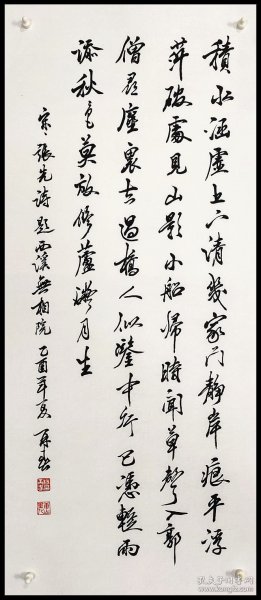 積水涵虚上下清幾家门静岸痕平浮
萍破處見山影小船歸時聞草聲入郭
僧尋塵裏去過橋人似鑒中行已憑暫雨
添秋色莫放修蘆碍月生
宋張先詩題西溪無相院 乙酉年夏
孔夫子旧书网
www.kongfz.com